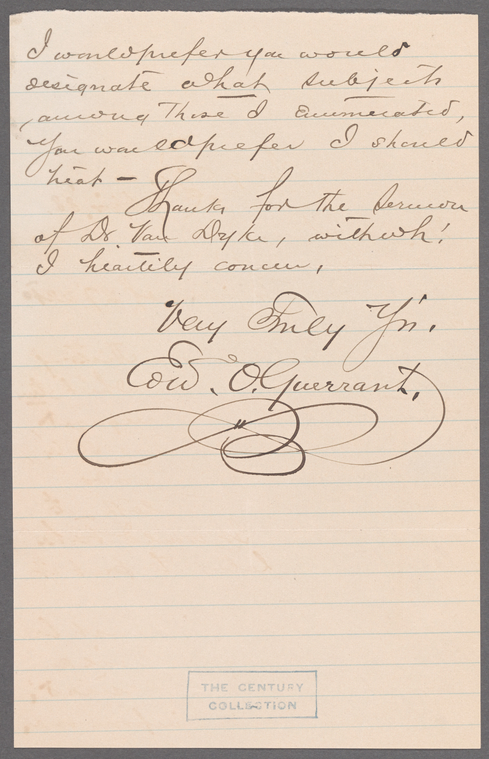 I would prefer you would
designate what subjects
among those I enumerated,
you would prefer I should
treat —
Thanks for the sermon
of Dr. Van Dyke, with wh:
I heartily concur,
Very Truly Yrs.
Edwd. O. Guerrant.
THE CENTURY
COLLECTION